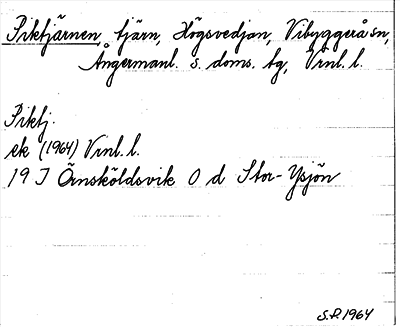 Piktjärnen, tjärn, Högsvedjan, Vibyggerå sn,
Ångermanl. s. doms. tg, Vrnl. l.
Piktj.
ek (1964) Vrnl. l.
19 J Örnsköldsvik O d Stor-Ysjön
S.P. 1964